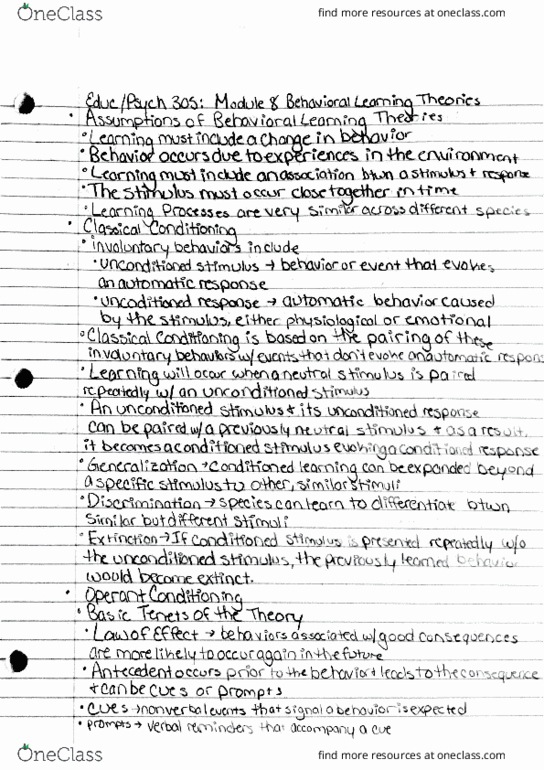 OneClass
find more resources at oneclass.com
Educ/Psych 305: Module 8 Behavioral Learning Theories
• Assumptions of Behavioral Learning Theories
• Learning must include a change in behavior
• Behavior occurs due to experiences in the environment
• Learning must include an association btwn a stimulus + response
• The stimulus must occur close together in time
• Learning Processes are very similar across different species
• Classical Conditioning
• involuntary behaviors include
• unconditioned stimulus → behavior or event that evokes
an automatic response
• uncoditioned response → automatic behavior caused
by the stimulus, either physiological or emotional
• Classical Conditioning is based on the pairing of these
involuntary behaviors w/ events that don't evoke an automatic respons
• Learning will occur when a neutral stimulus is paired
repeatedly w/ an unconditioned stimulus
• An unconditioned stimulus + its unconditioned response
can be paired w/ a previously neutral stimulus + as a result,
it becomes a conditioned stimulus evoking a conditioned response
• Generalization → conditioned learning can be expanded beyond
a specific stimulus to other, similar stimuli
• Discrimination → species can learn to differentiate btwn
similar but different stimuli
• Extinction → If conditioned stimulus is presented repeatedly w/o
the unconditioned stimulus, the previously learned behavior
would become extinct.
• Operant Conditioning
• Basic Tenets of the Theory
• Law of Effect → behaviors associated w/ good consequences
are more likely to occur again in the future
• Antecedent occurs prior to the behavior + leads to the consequence
+ can be cues or prompts
• cues → nonverbal events that signal a behavior is expected
• prompts → verbal reminders that accompany a cue
OneClass
find more resources at oneclass.com